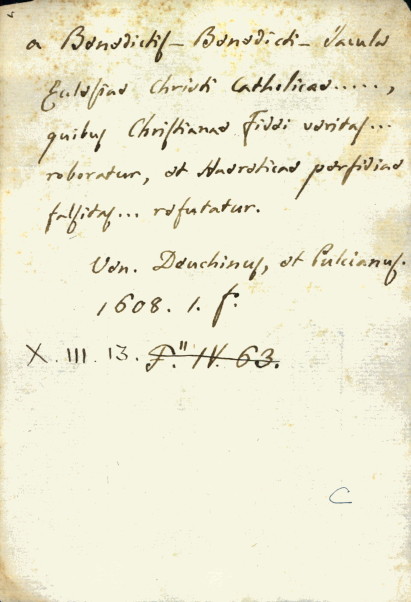 a Benedictis - Benedicti - Jacula
Eclesiae Christi Catholicae.....,
quibus Christianae Fidei veritas...
roboratur, et Haereticae perfidiae
falsitas... refutatur.
Ven. Deuchinus, et Pulcianus.
1608. 1. f.
X. III. 13. P." IV. 63.
C